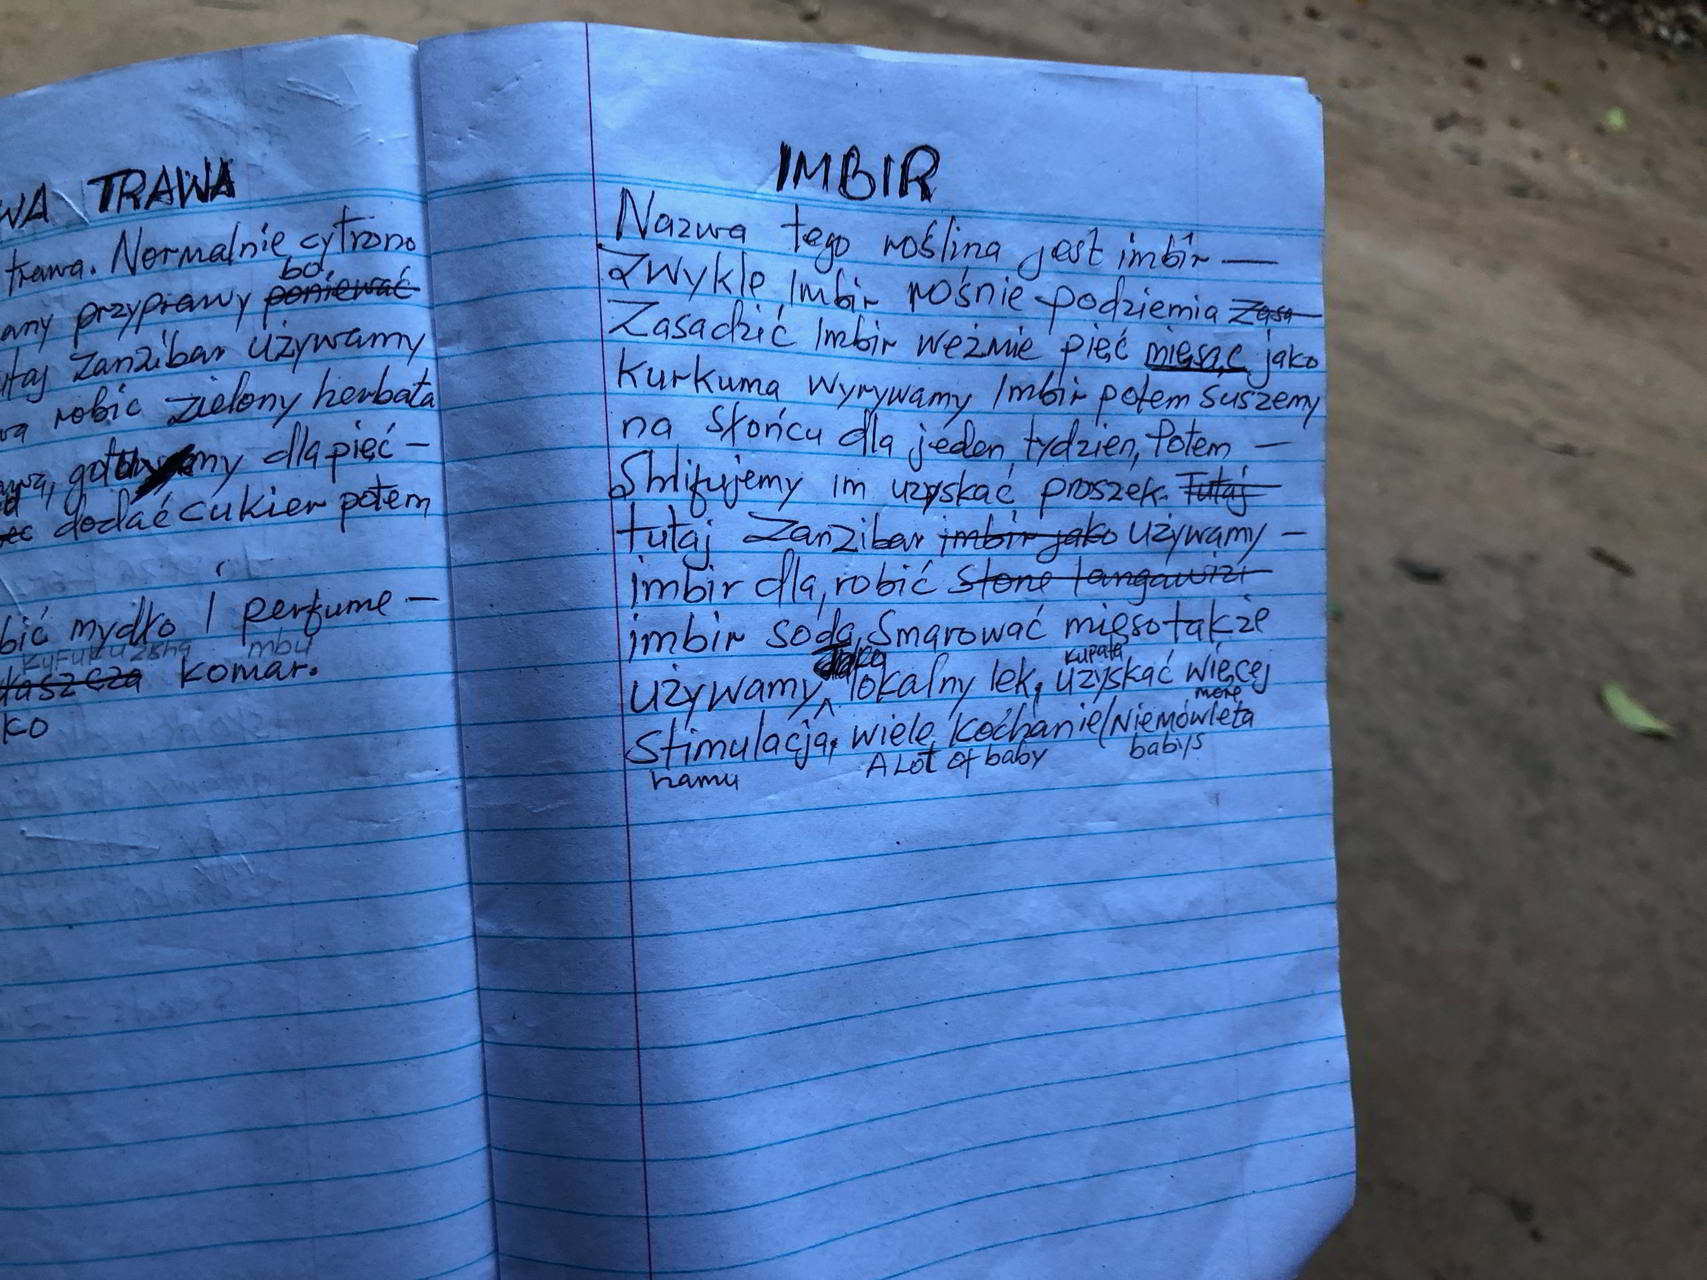 WA TRAWA
trawa. Normalnie cytrono
bo
any przyprawy poniewać
taj Zanzibar używamy
robic zielony herbata
my dla pięć —
dodać cukier potem
bić mydło i perfume —
mbu
taszcza komar.
ko
IMBIR
Nazwa tego roślina jest imbir —
Zwykle Imbir rośnie podziemia Zasa
Zasadzić Imbir weźmie pięć miesąc jako
kurkuma wyrywamy Imbir potem suszemy
na słońcu dla jeden tydzien, Potem —
Shlifujemy im uzyskać proszek. Tutaj
tutaj Zanzibar imbir jako używamy —
imbir dla, robić Stone tangawizi
imbir soda, Smarować mięso także
jako kupata
używamy lokalny lek, uzyskać więcej
more
Stimulacja, wiele kochanie/Niemówleta
hamu A Lot of baby babys